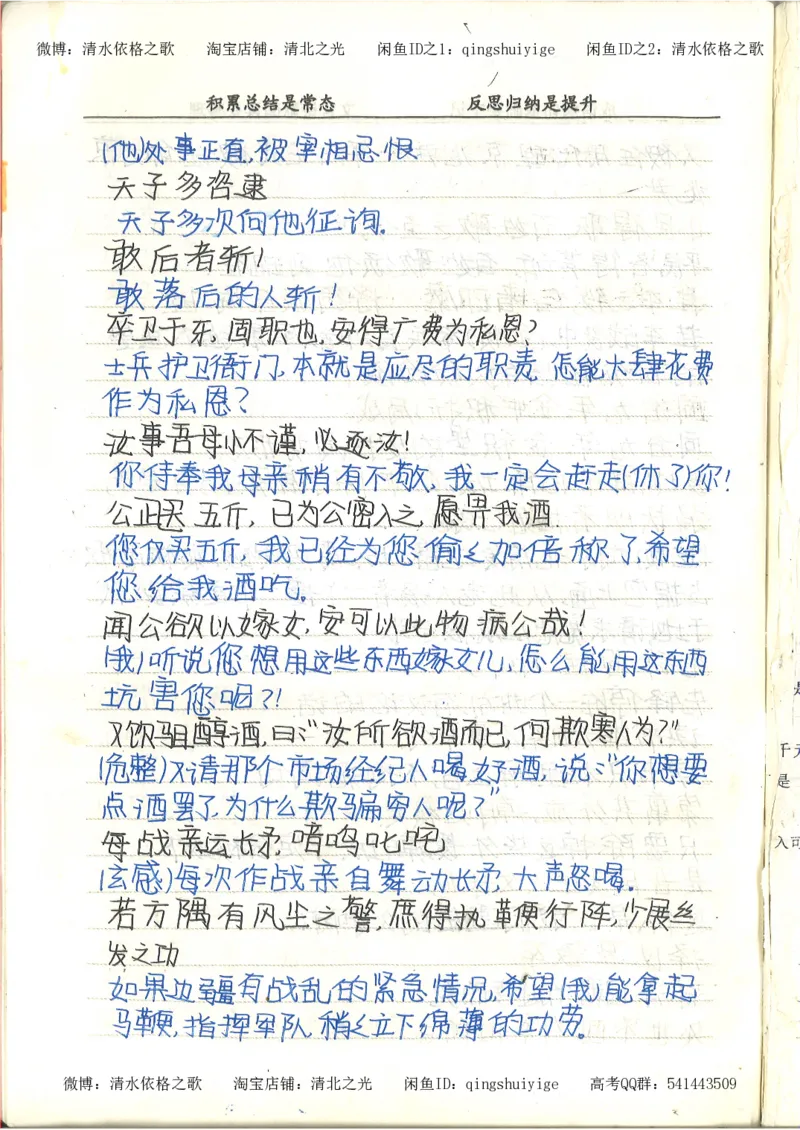 微博：清水依格之歌 淘宝店铺：清北之光 闲鱼ID之1：qingshuiyige 闲鱼ID之2：清水依格之歌
积累总结是常态 反思归纳是提升
(他)处事正直,被宰相忌恨
天子多咨逮
天子多次向他征询.
敢后者斩!
敢落后的人斩!
卒卫于牙,固职也,安得广费为私恩?
士兵护卫衙门,本就是应尽的职责,怎能大肆花费
作为私恩?
汝事吾母小不谨,必逐汝!
你侍奉我母亲稍有不敬,我一定会赶走(休了)你!
公正买五斤,已为公密入之,愿畀我酒
您仅买五斤,我已经为您偷偷加倍称了,希望
您给我酒吃.
闻公欲以嫁女,安可以此物病公哉!
(我)听说您想用这些东西嫁女儿,怎么能用这东西
坑害您呢?!
又饮驵醇酒,曰:"汝所欲酒而已,何欺寒人为?"
(危整)又请那个市场经纪人喝好酒,说:"你想要
点酒罢了,为什么欺骗穷人呢?"
每战亲运长矛,喑呜叱咤
(玄感)每次作战亲自舞动长矛,大声怒喝.
若方隅有风尘之警,庶得执鞭行阵,少展丝
发之功
如果边疆有战乱的紧急情况,希望(我)能拿起
马鞭,指挥军队,稍稍立下绵薄的功劳.
是
千元
是
入可
微博：清水依格之歌 淘宝店铺：清北之光 闲鱼ID：qingshuiyige 高考QQ群：541443509